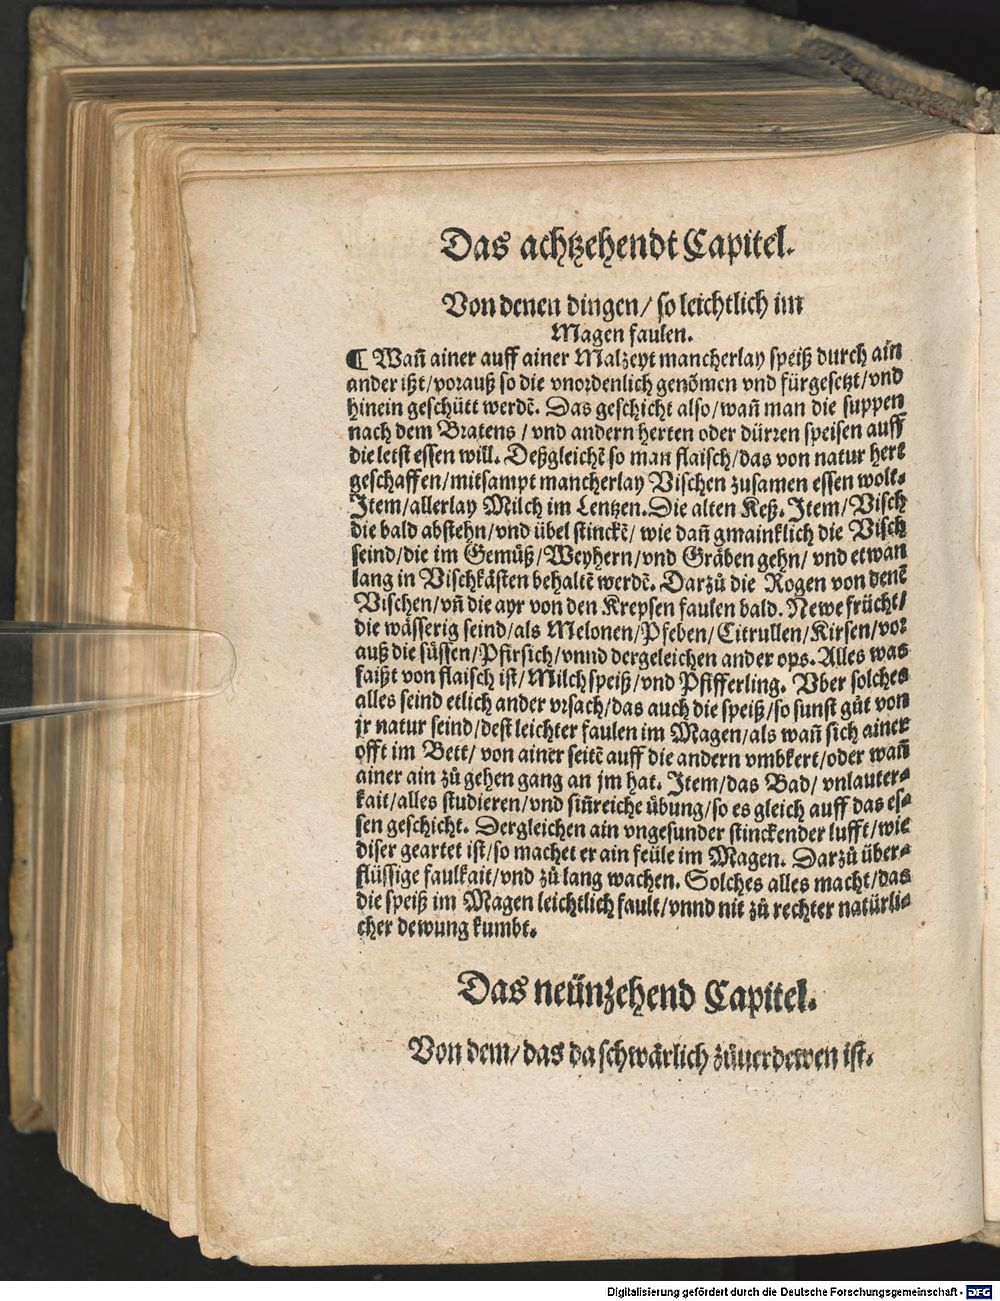 Das achtzehendt Capitel.
Von denen dingen/ so leichtlich im
Magen faulen.
¶ Wañ ainer auff ainer Malzeyt mancherlay speiß durch ain
ander ißt/vorauß so die vnordenlich genõmen vnd fürgesetzt/vnd
hinein geschütt werdẽ. Das geschicht also/wañ man die suppen
nach dem Bratens / vnd andern herten oder dürren speisen auff
die letst essen will. Deßgleichẽ so man flaisch/das von natur hert
geschaffen/mitsampt mancherlay Vischen zusamen essen wolt.
Item/allerlay Milch im Lentzen. Die alten Keß. Item/Visch
die bald abstehn/vnd übel stinckẽ/ wie dañ gmainklich die Visch
seind/die im Gemüß/Weyhern/vnd Gräben gehn/ vnd etwan
lang in Vischkästen behaltẽ werdẽ. Darzů die Rogen von denẽ
Vischen/vñ die ayr von den Krepsen faulen bald. Newe frücht/
die wässerig seind/als Melonen/Pfeben/Citrullen/Kirsen/vor
auß die süssen/Pfirsich/vnnd dergeleichen ander ops. Alles was
faißt von flaisch ist/Milchspeiß/vnd Pfifferling. Vber solches
alles seind etlich ander vrsach/das auch die speiß/so sunst gůt von
jr natur seind/dest leichter faulen im Magen/als wañ sich ainer
offt im Bett/ von ainer seitẽ auff die andern vmbkert/oder wañ
ainer ain zů gehen gang an jm hat. Item/das Bad/ vnlauter-
kait/alles studieren/vnd siñreiche übung/so es gleich auff das es-
sen geschicht. Dergleichen ain vngesunder stinckender lufft/wie
diser geartet ist/so machet er ain feüle im Magen. Darzů über-
flüssige faulkait/vnd zů lang wachen. Solches alles macht/das
die speiß im Magen leichtlich fault/vnnd nit zů rechter natürli-
cher dewung kumbt.
Das neünzehend Capitel.
Von dem/das da schwärlich zůuerdewen ist.
Digitalisierung gefördert durch die Deutsche Forschungsgemeinschaft - DFG